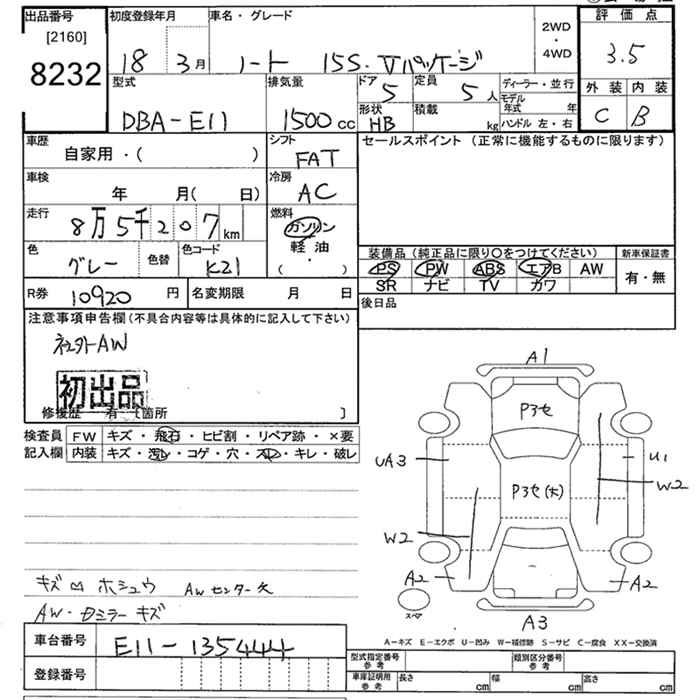 出品番号 初度登録年月 車名・グレード 2WD・4WD 評価点
[2160]
8232 18 3月 ノート 15S・Vパッケージ 3.5
型式 排気量 ドア 5 定員 5人 ディーラー・並行 外装 内装
モデル年式 年
DBA-E11 1500cc 形状 HB 積載 kg ハンドル 左・右 C B
車歴 シフト セールスポイント(正常に機能するものに限ります)
自家用・( ) FAT
車検 冷房
年 月( 日) AC
走行 燃料
8万5千207km ガソリン
軽油
色 グレー 色替 色コード K21 ・
( )
装備品(純正品に限り○をつけてください) 新車保証書
PS PW ABS エアB AW 有・無
SR ナビ TV カワ
R券 10920円 名変期限 月 日 後日品
注意事項申告欄(不具合内容等は具体的に記入して下さい)
社外AW
初出品
修復歴 有 [箇所 ]
検査員 FW キズ・飛石・ヒビ割・リペア跡・×要
記入欄 内装 キズ・汚レ・コゲ・穴・スレ・キレ・破レ
A1
P3セ
UA3 U1
P3セ(大) W2
W2
A2 A2
スペア
A3
キズ ホシュウ AWセンター欠
AW・Dミラーキズ
A-キズ E-エクボ U-凹み W-補修跡 S-サビ C-腐食 XX-交換済
車台番号 E11-135444
型式指定番号 参考 類別区分番号 参考
登録番号 車庫証明用 参考 長さ cm 幅 cm 高さ cm